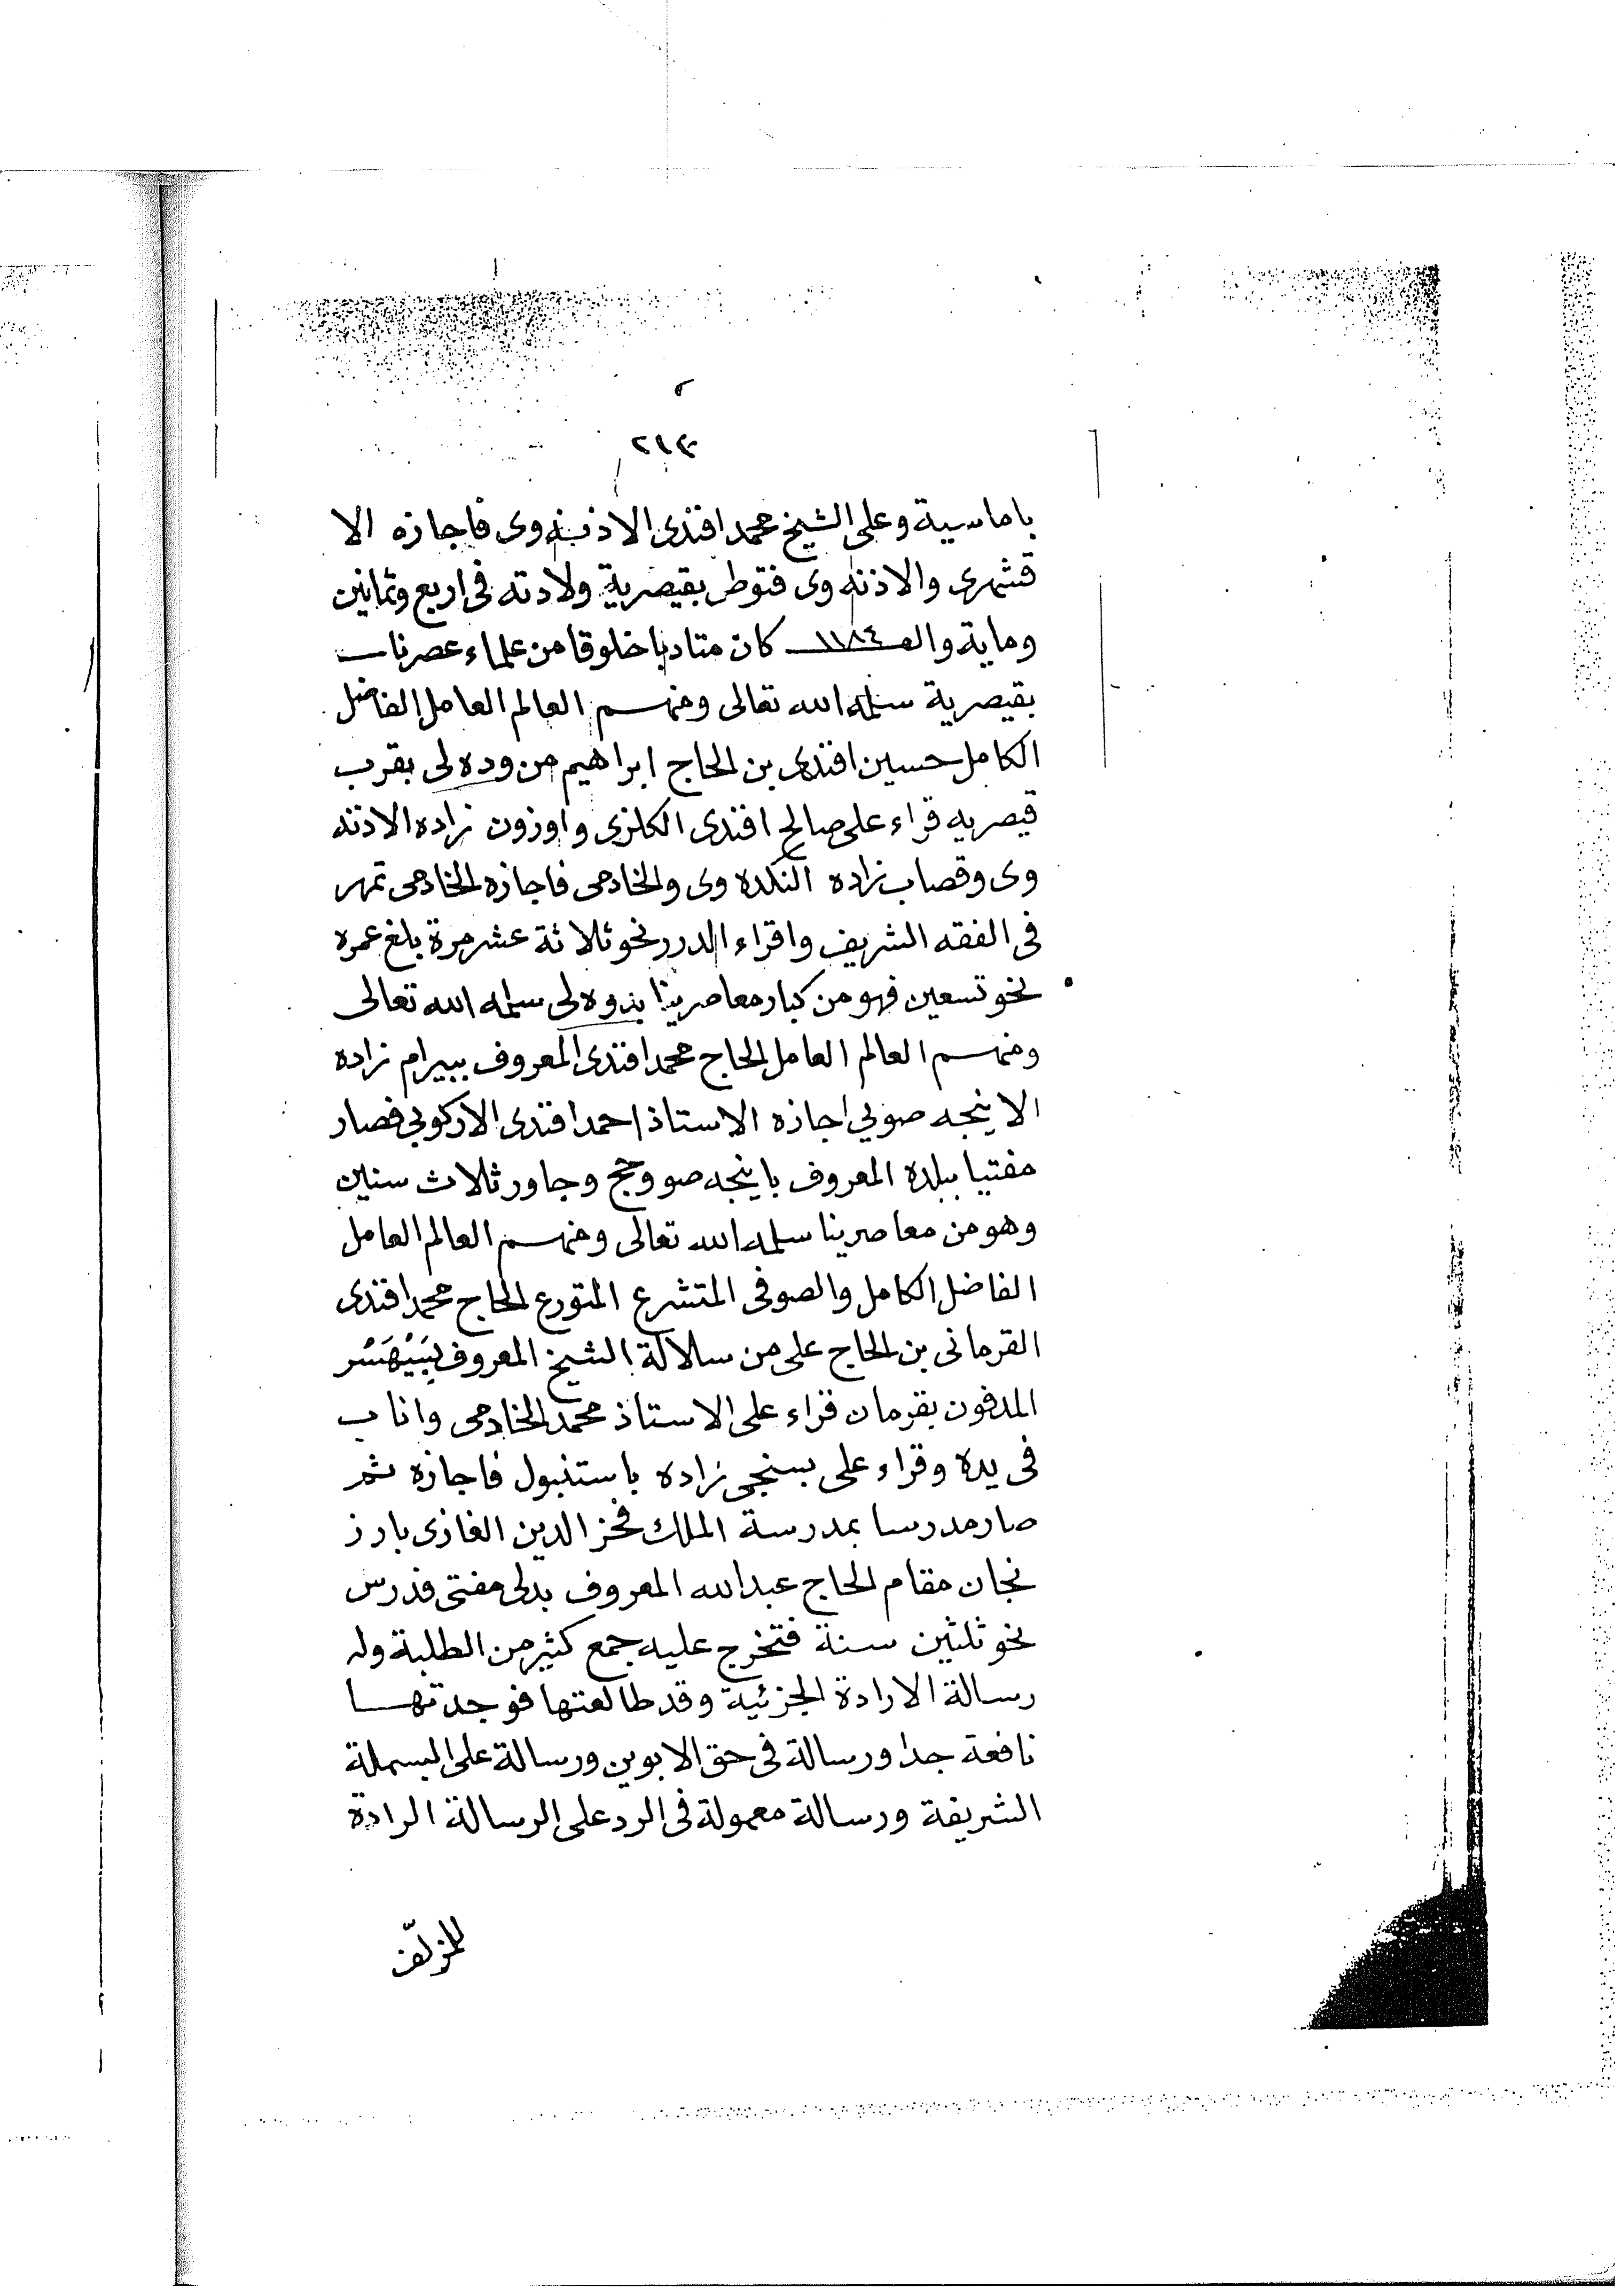 ٢١٣
باماسية وعلى الشيخ محمد افندى الاذنه وى فاجازه الا
قشهرى والاذنه وى فتوطن بقيصرية ولادته فى اربع وثمانين
وماية والف ١١٨٤ كان متادبا خلوقا من علماء عصرنا
بقيصرية سلمه الله تعالى ومنهم العالم العامل الفاضل
الكامل حسين افندى بن الحاج ابراهيم من وده لى بقرب
قيصريه قراء على صالح افندى الكلزى واوزون زاده الاذنه
وى وقصاب زاده النكده وى والخادمى فاجازه الخادمى تمهر
فى الفقه الشريف واقراء الدرر نحو ثلاثة عشر مرة بلغ عمره
نحو تسعين فهو من كبار معاصرينا بدوه لى سلمه الله تعالى
ومنهم العالم العامل الحاج محمد افندى المعروف ببيرام زاده
الاينجه صويى اجازه الاستاذ احمد افندى الاركوبى فصار
مفتيا ببلده المعروف باينجه صو وحج وجاور ثلاث سنين
وهو من معاصرينا سلمه الله تعالى ومنهم العالم العامل
الفاضل الكامل والصوفى المتشرع المتورع الحاج محمد افندى
القرمانى بن الحاج على من سلالة الشيخ المعروف
المدفون بقرمان قراء على الاستاذ محمد الخادمى واناب
فى يده وقراء على بسنجى زاده باستنبول فاجازه ثم
صار مدرسا بمدرسة الملك فخر الدين الغازى بارز
نجان مقام الحاج عبدالله المعروف بدلى مفتى فدرس
نحو ثلثين سنة فتخرج عليه جمع كثير من الطلبة وله
رسالة الارادة الجزئية وقد طالعتها فوجدتها
نافعة جدا ورسالة فى حق الابوين ورسالة على البسملة
الشريفة ورسالة معمولة فى الرد على الرسالة الرادة
للمؤلف